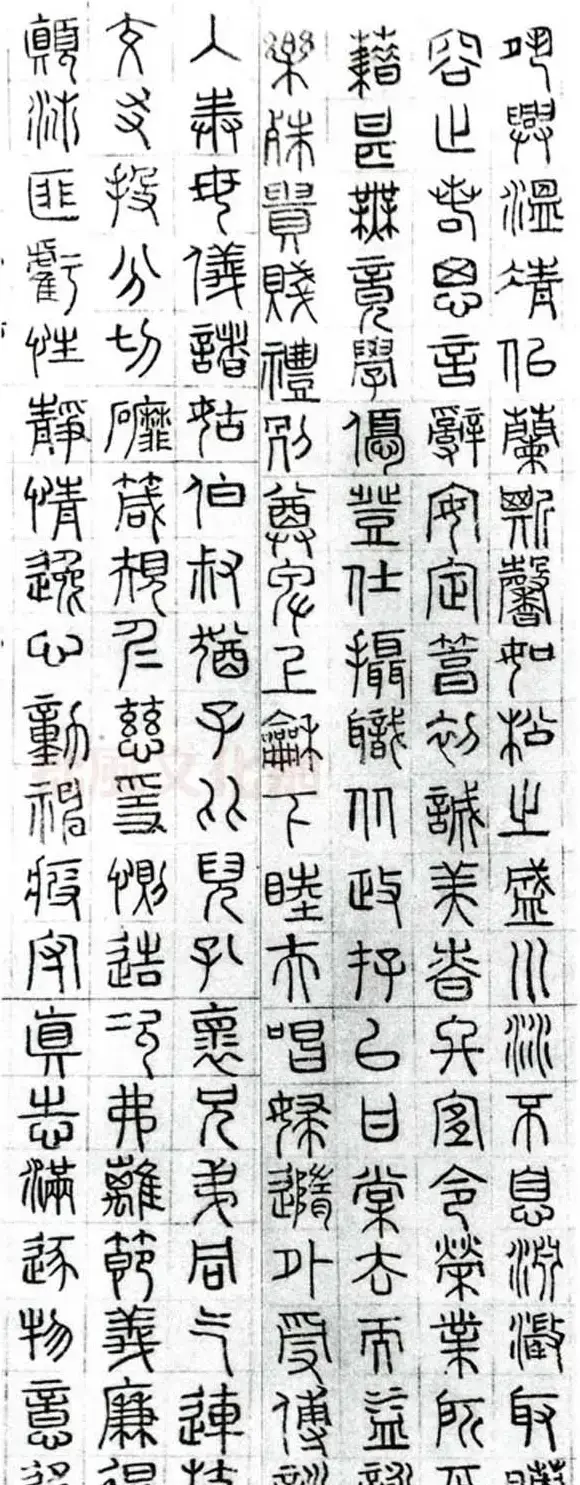 夙興溫凊似蘭斯馨如松之盛川流不息淵澄取
容止若思言辭安定篤初誠美慎終宜令榮業所
藉甚無竟學優登仕攝職從政存以甘棠去而益
樂殊貴賤禮別尊卑上和下睦夫唱婦隨外受傅
入奉母儀諸姑伯叔猶子比兒孔懷兄弟同氣連
交友投分切磨箴規仁慈隱惻造次弗離節義廉
顛沛匪虧性靜情逸心動神疲守真志滿逐物意